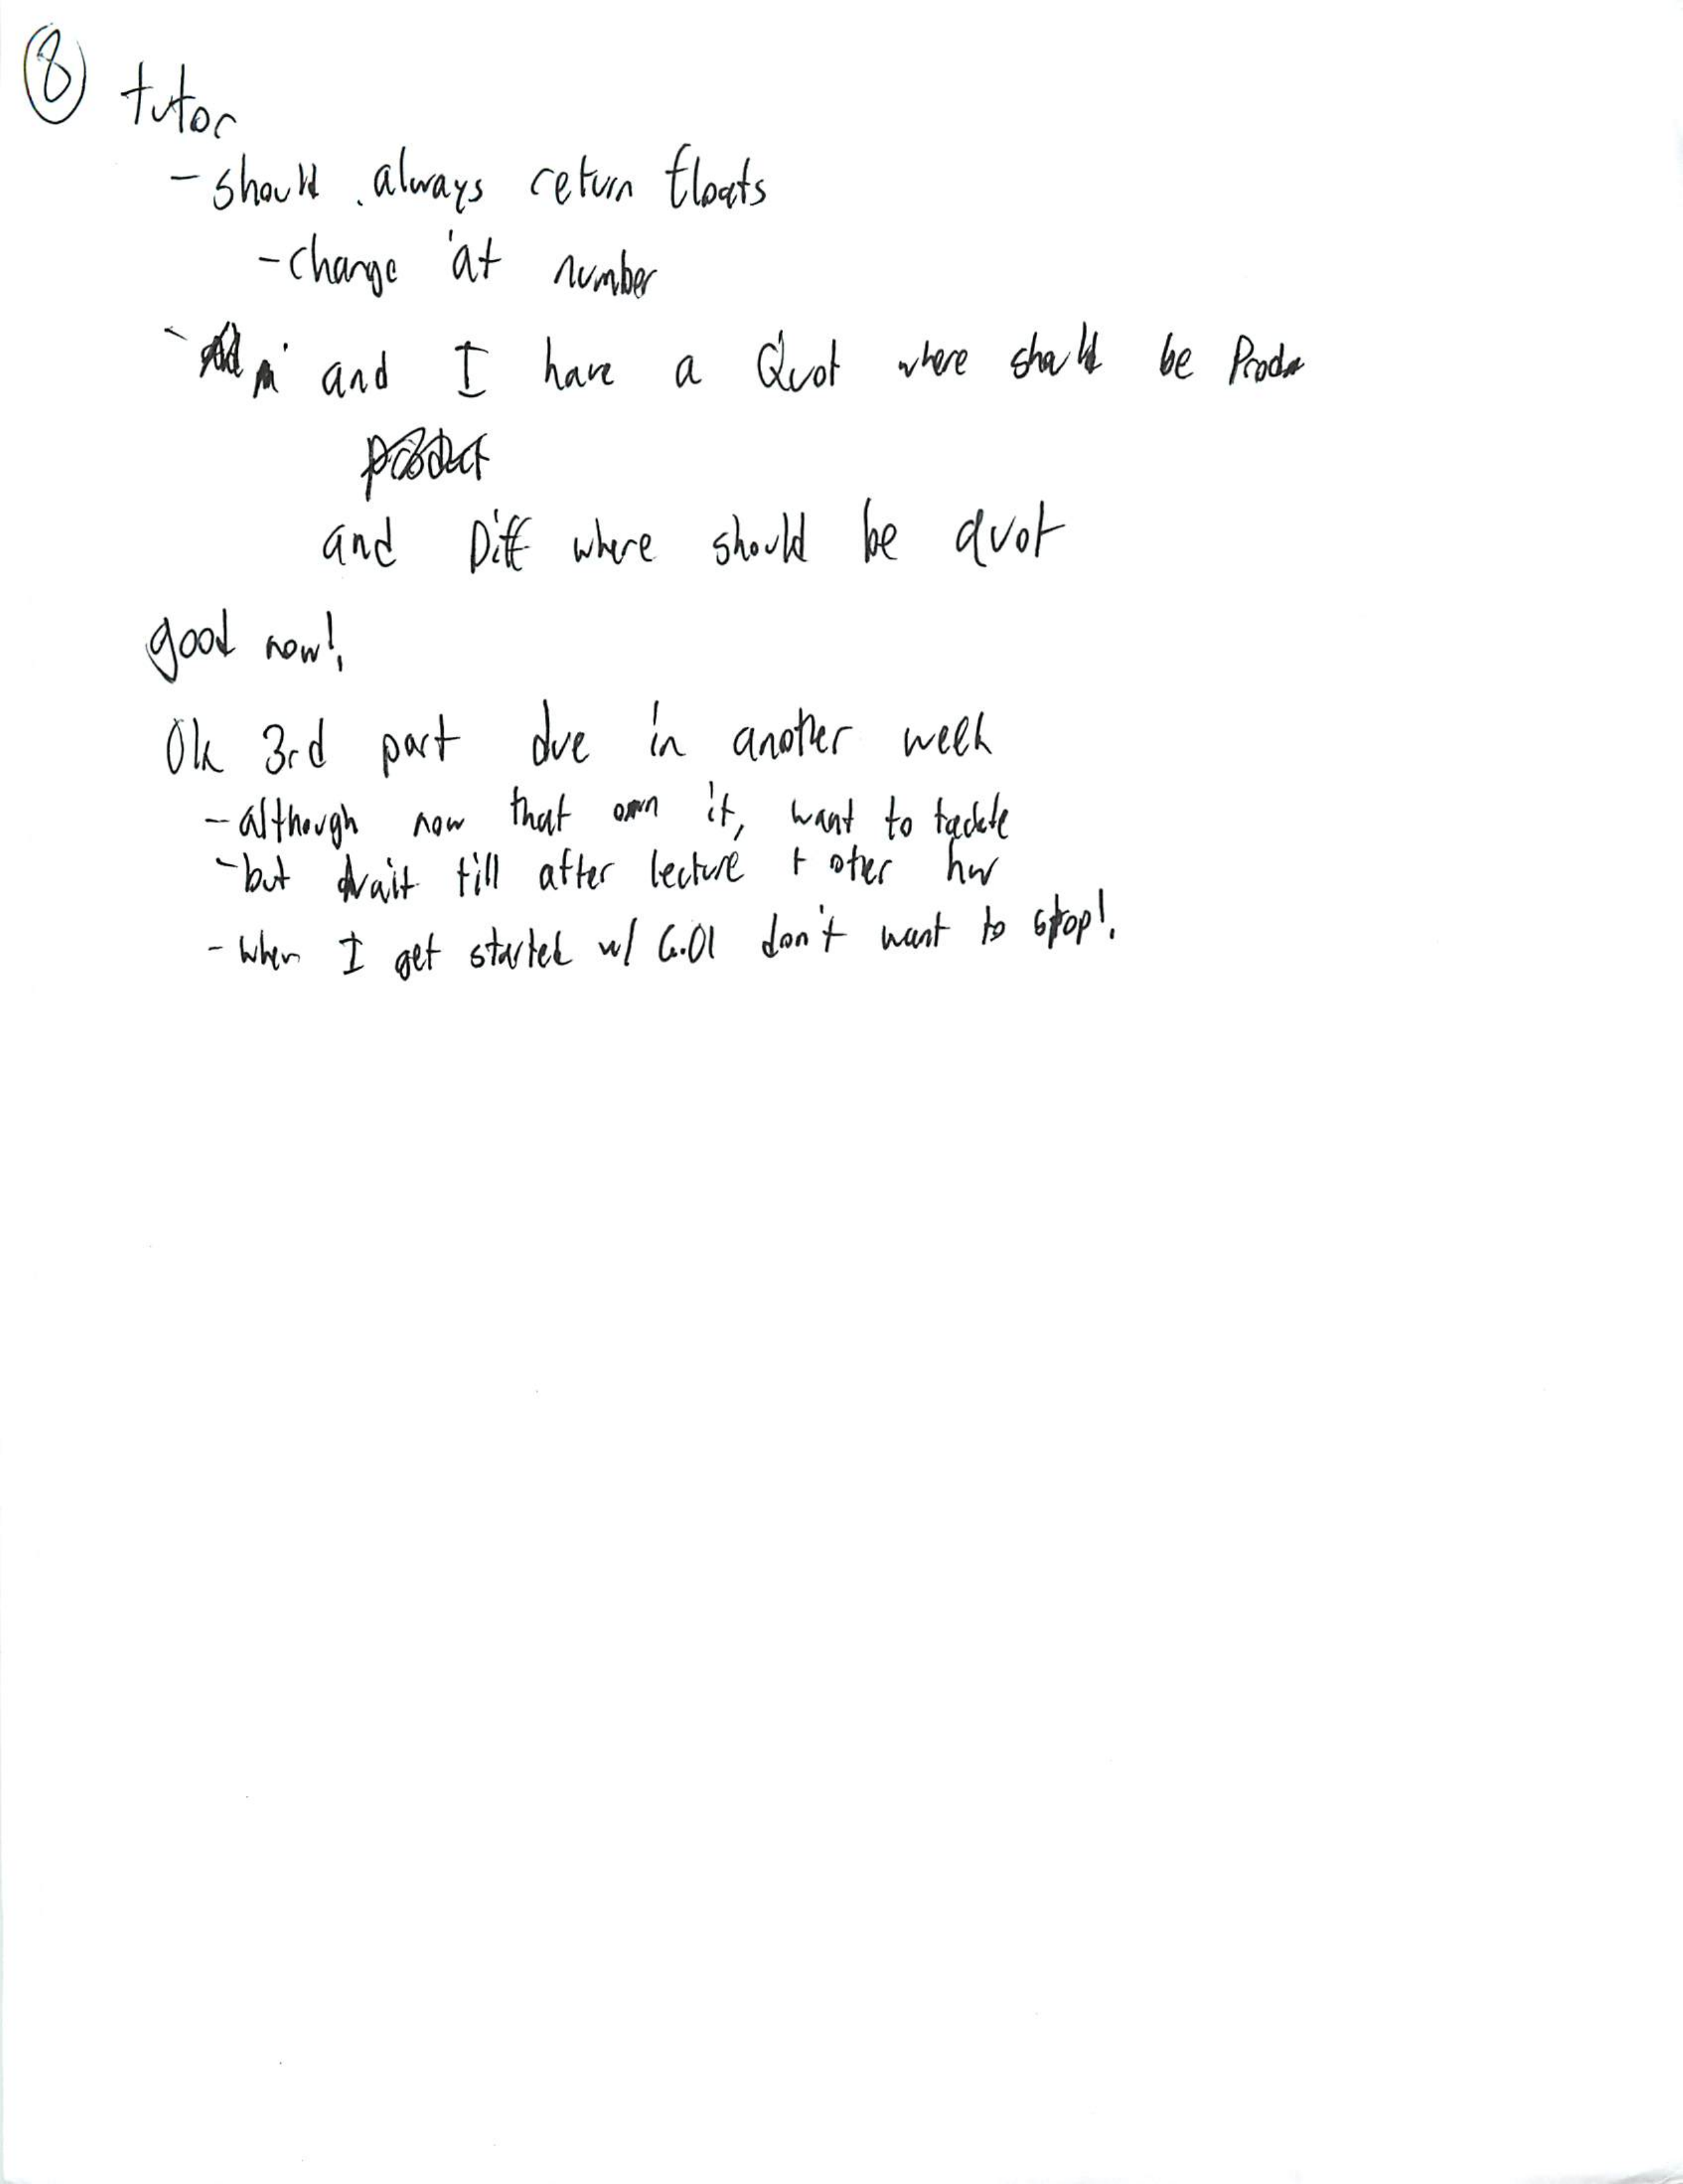 8 tutor
- should always return floats
- change at number
- and I have a Quot where should be Prod
product
and Diff where should be quot
good now!
Ok 3rd part due in another week
- although now that on it, want to tackle
- but wait till after lecture + other hw
- when I get started w/ 6.01 don't want to stop!